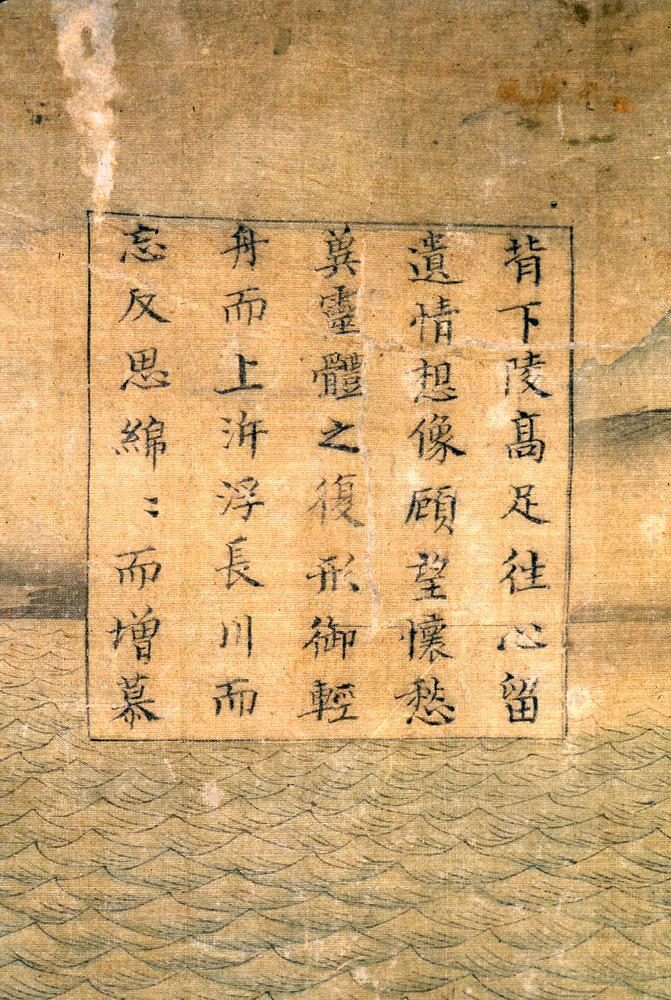 背下陵髙足往心留
遺情想像顾望懷愁
冀靈體之復形御輕
舟而上泝浮長川而
忘反思綿〻而增慕